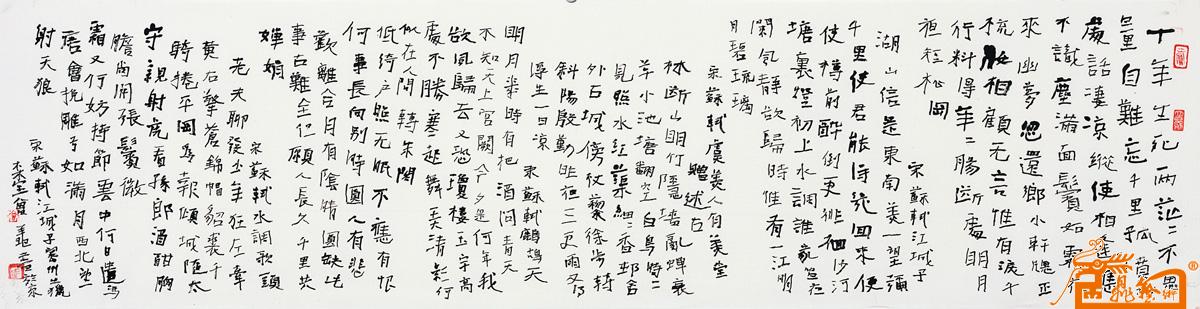 十年生死两茫茫不思
量自難忘千里孤墳無
處話凄凉縱使相逢應
不識塵滿面鬢如霜夜
來幽夢忽還鄉小軒牕正
梳妝相顧无言惟有淚千
行料得年年腸斷處明月
夜短松岡
宋蘇軾江城子
湖山信是東南美一望彌
千里使君能得幾回來便
使樽前醉倒更徘徊沙河
塘裏燈初上水調誰家唱夜
闌風靜欲歸時惟有一江明
月碧琉璃
宋蘇軾虞美人有美堂
贈述古
林斷山明竹隱墻亂蟬衰
草小池塘翻空白鳥時時
見照水紅蕖細細香邨舍
外古城傍杖藜徐步轉
斜陽殷勤昨夜三更雨又得
浮生一日凉
宋蘇軾鷓鴣天
明月幾時有把酒問青天
不知天上宮闕今夕是何年我
欲乘風歸去又恐瓊樓玉宇高
處不勝寒起舞弄清影何
似在人間轉朱閣
低綺户照无眠不應有恨
何事長向别時圓人有悲
歡離合月有陰晴圓缺此
事古難全但願人長久千里共
嬋娟
宋蘇軾水調歌頭
老夫聊發少年狂左牽
黄右擎蒼錦帽貂裘千
騎捲平岡為報傾城隨太
守親射虎看孫郎酒酣胸
膽尚開張鬢微
霜又何妨持節雲中何日遣馮
唐會挽雕弓如滿月西北望
射天狼
宋蘇軾江城子密州出獵